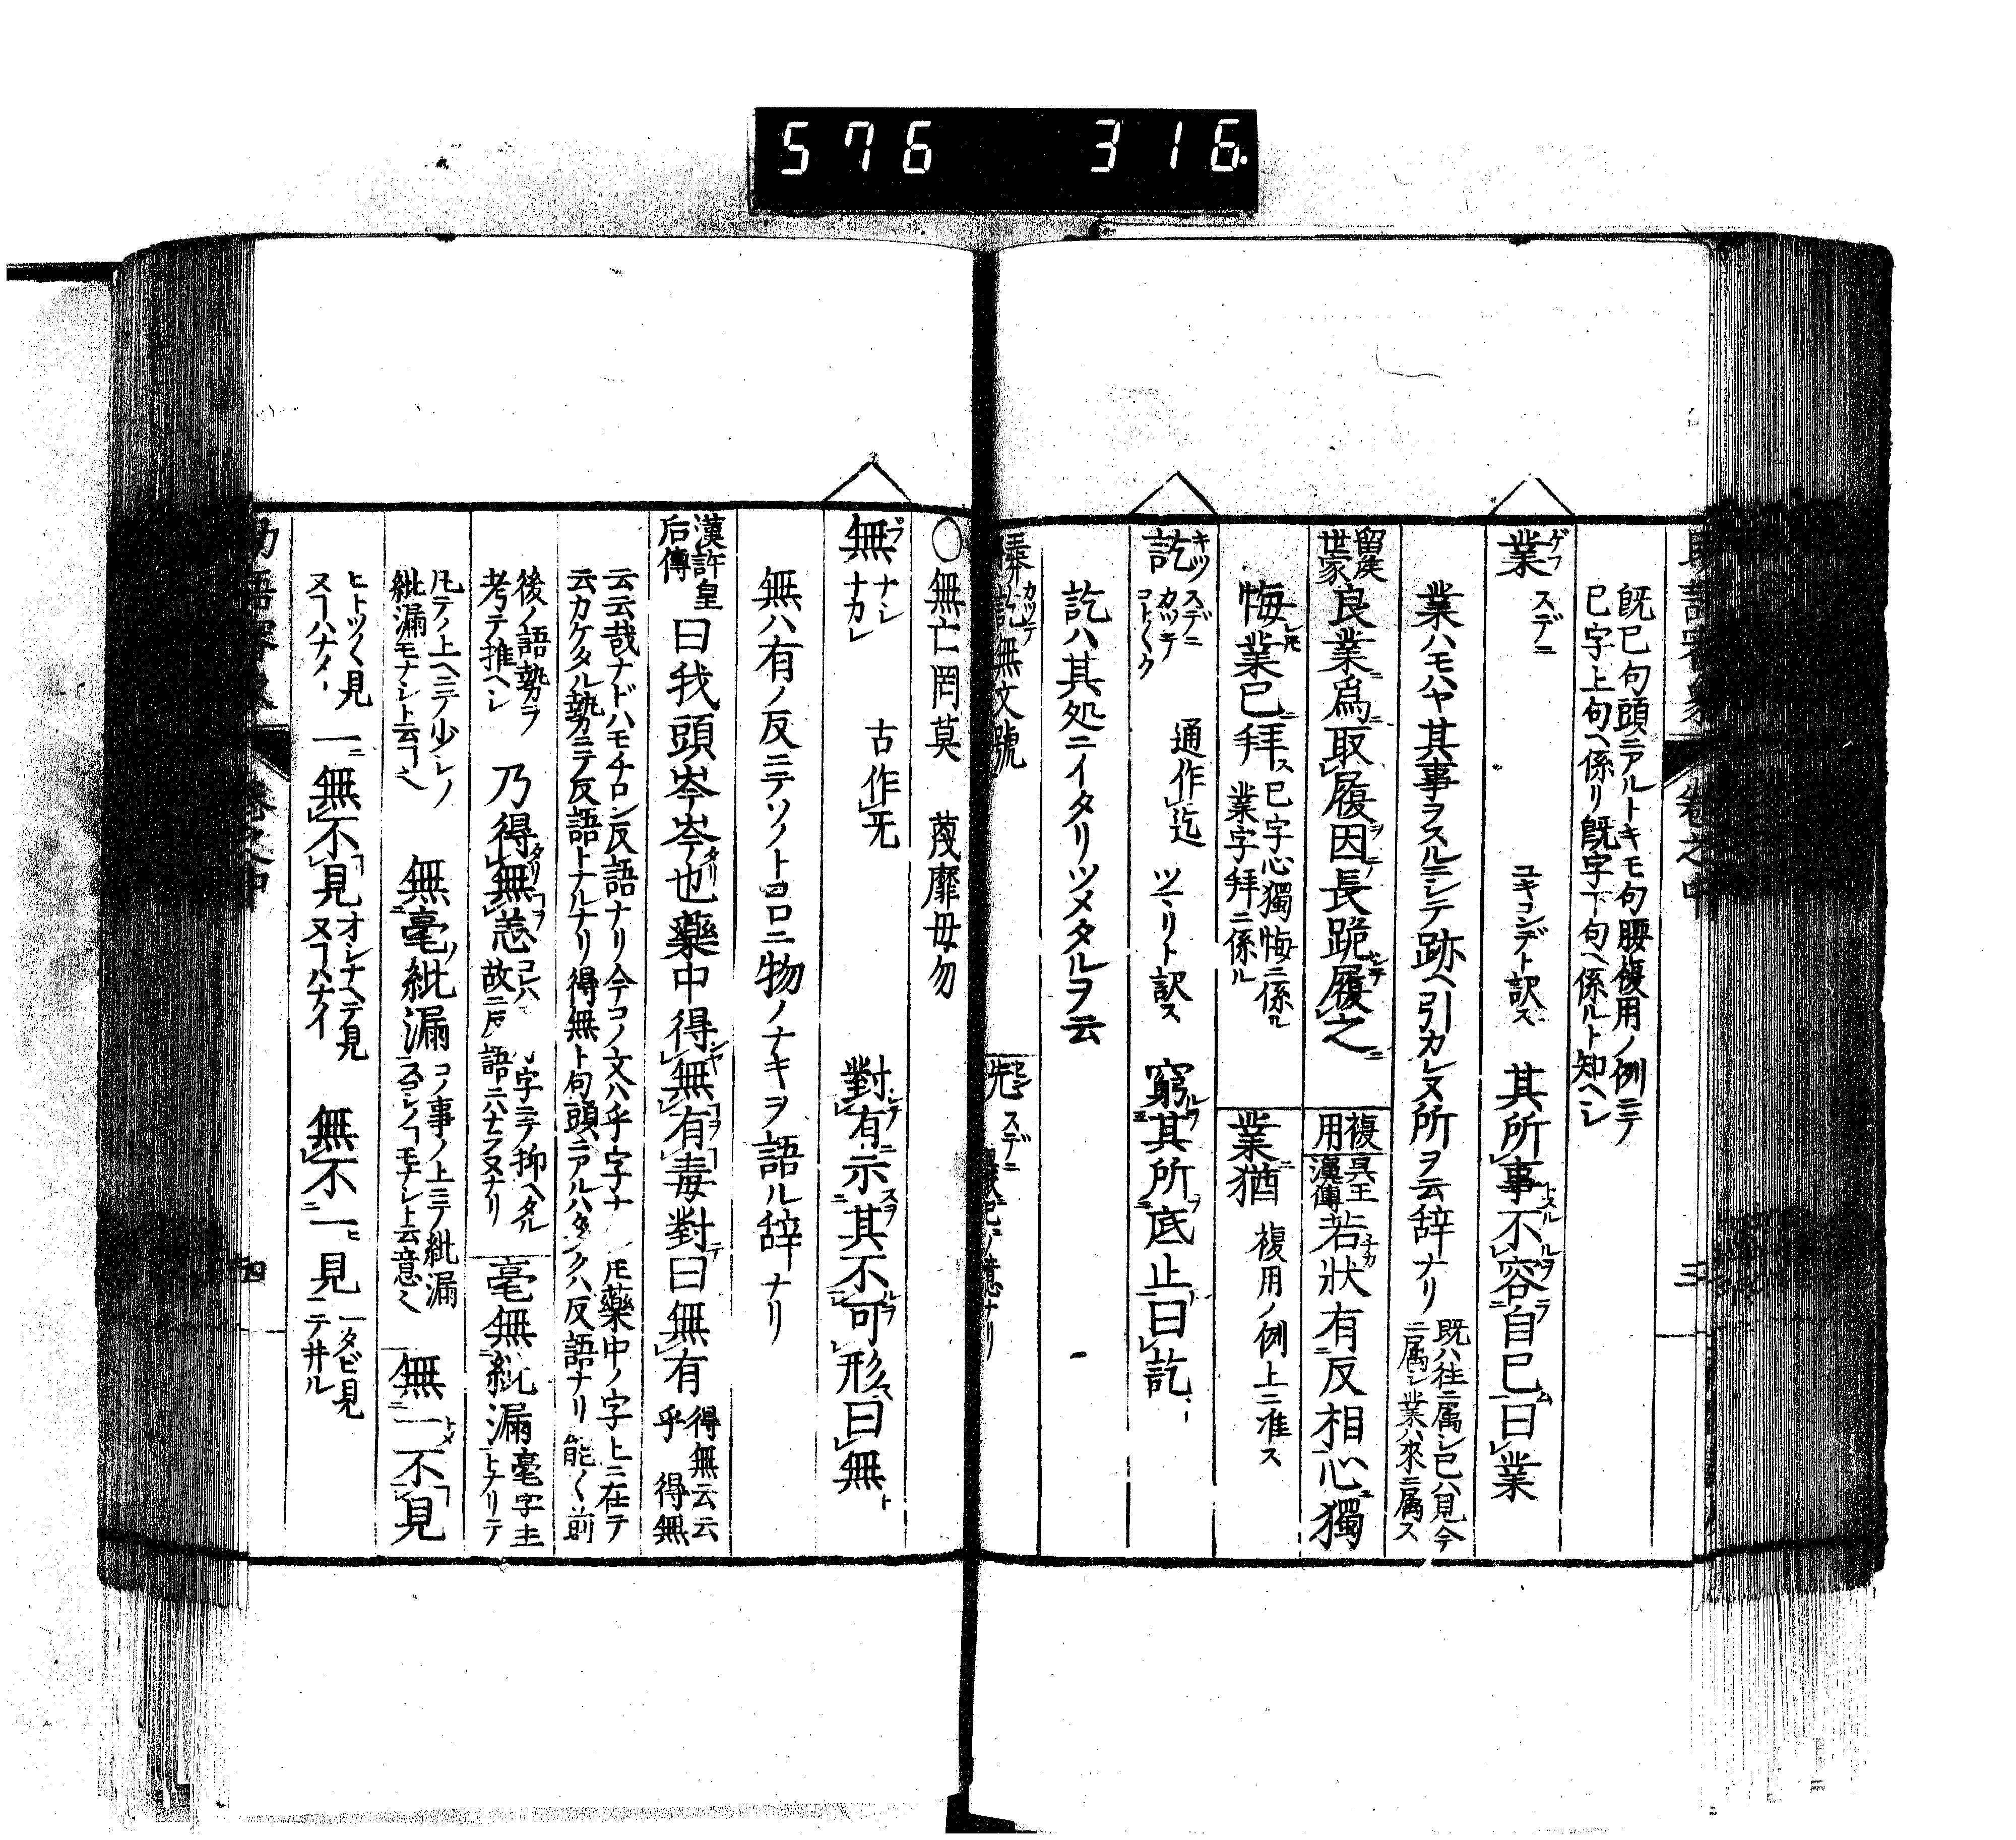 576 316
既已句頭ニアルトキモ句腰複用ノ例ニテ
已字上句ヘ係リ既字下句ヘ係ルト知ヘシ
業 ゲフ スデニ ユキコンデト訳ス 其所事不容自已曰業
業ハモハヤ其事ヲスルニシテ跡ヘ引カレヌ所ヲ云辞ナリ 既ハ往ニ属シ已ハ見今ニ属シ業ハ来ニ属ス
留侯世家 良業為取履因長跪履之 複用 呉王濞傳 若狀有反相心獨
悔業已拜 已字心獨悔ニ係ル業字拜ニ係ル 業猶 複用ノ例上ニ准ス
訖 キツ スデニ カツテ コト〳〵ク 通作迄 ツマリト訳ス 窮其所底止曰訖
訖ハ其処ニイタリツメタルヲ云
訖無文號 先 スデニ
〇無亡罔莫 蔑靡毋勿
無 ブ ナシ ナカレ 古作无 對有示其不可形曰無
無ハ有ノ反ニテソノトコロニ物ノナキヲ語ル辞ナリ
漢許皇后傳 曰我頭岑岑也藥中得無有毒對曰無有 得無云云乎 得無
云云哉ナドハモチロン反語ナリ今コノ文ハ乎字ナ 㕝藥中ノ字上ニ在テ
云カケタル勢ニテ反語トナルナリ得無ト句頭ニアルハ 反語ナリ能く前
後ノ語勢ヲ考テ推ヘシ 乃得無恙 毫無紕漏 毫字主トナリテ
㕝テノ上ヘニテ少シノ紕漏モナシト云フヘ 無毫紕漏 コノ事ノ上ニテ紕漏スコシノコモナシト云意ヘ 無一不見
ヒトツ〳〵見ヌコハナイ 一無不見 オシナヘテ見ヌコハナイ 無不一見 一タビ見テ井ル